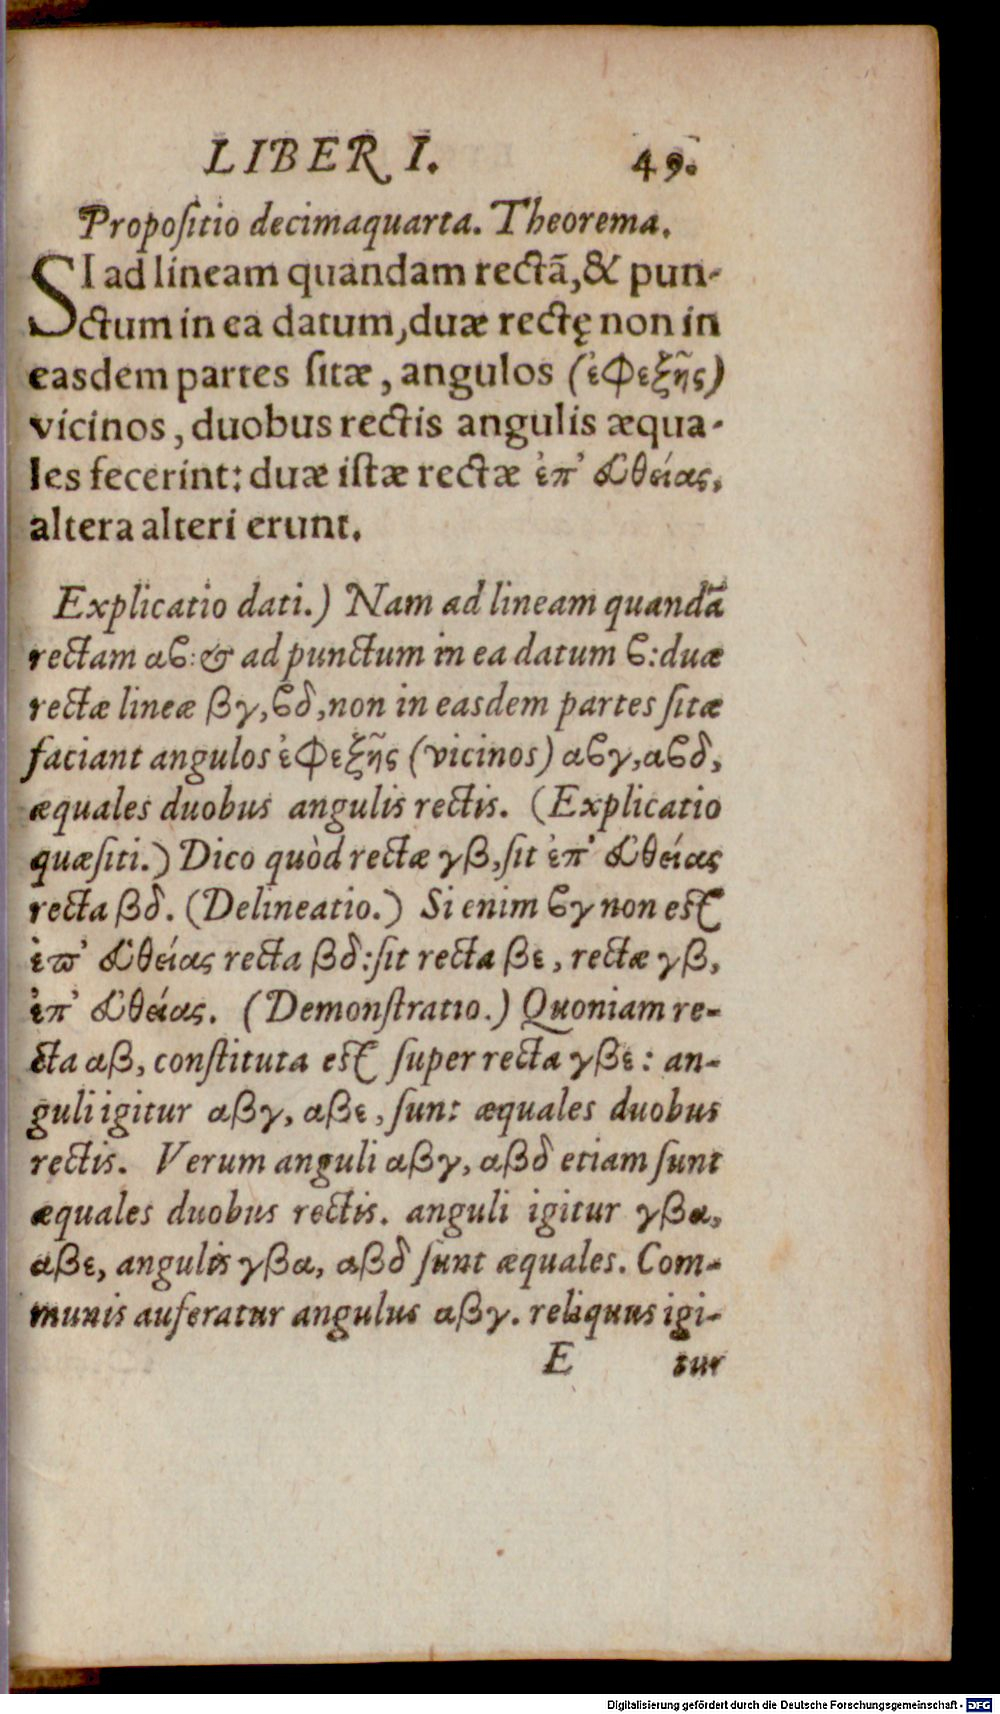 LIBER I. 49.
Propoſitio decimaquarta. Theorema.
SI ad lineam quandam rectā, & pun-
ctum in ea datum, duæ rectę non in
easdem partes ſitæ, angulos (ἐφεξῆς)
vicinos, duobus rectis angulis æqua-
les fecerint: duæ iſtæ rectæ ἐπ' εὐθείας,
altera alteri erunt.
Explicatio dati.) Nam ad lineam quandā
rectam αϐ: & ad punctum in ea datum ϐ: duæ
rectæ lineæ βγ, ϐδ, non in easdem partes ſitæ
faciant angulos ἐφεξῆς (vicinos) αϐγ, αϐδ,
æquales duobus angulis rectis. (Explicatio
quæſiti.) Dico quòd rectæ γβ, ſit ἐπ' εὐθείας
recta βδ. (Delineatio.) Si enim ϐγ non eſt
ἐϖ' εὐθείας recta βδ: ſit recta βε, rectæ γβ,
ἐπ' εὐθείας. (Demonſtratio.) Quoniam re-
cta αβ, conſtituta eſt ſuper recta γβε: an-
guli igitur αβγ, αβε, ſunt æquales duobus
rectis. Verum anguli αβγ, αβδ etiam ſunt
æquales duobus rectis. anguli igitur γβα,
αβε, angulis γβα, αβδ ſunt æquales. Com-
munis auferatur angulus αβγ. reliquus igi-
E tur
Digitalisierung gefördert durch die Deutsche Forschungsgemeinschaft - DFG